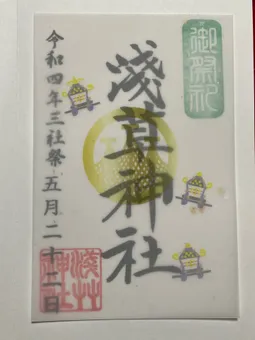 御祭礼
淺草神社
令和四年三社祭 五月二十二日
淺草
神社